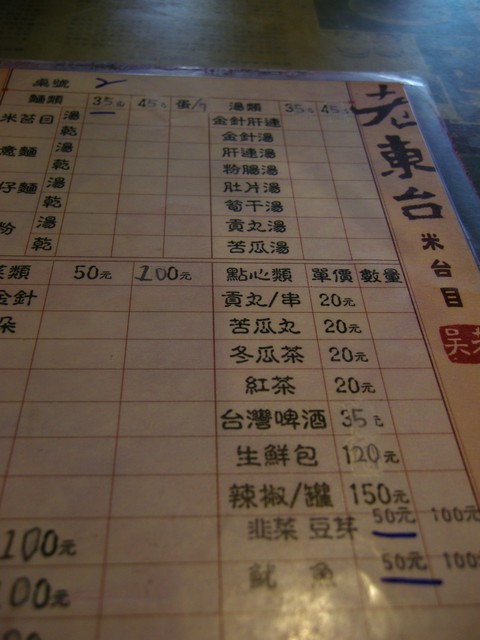 老東台
米台目
吳
桌號
麵類 35元 45元 蛋/個 湯類 35元 45元
米苔目 湯 金針肝連
乾 金針湯
意麵 湯 肝連湯
乾 粉腸湯
仔麵 湯 肚片湯
乾 筍干湯
粉 湯 貢丸湯
乾 苦瓜湯
菜類 50元 100元 點心類 單價 數量
金針 貢丸/串 20元
朵 苦瓜丸 20元
冬瓜茶 20元
紅茶 20元
台灣啤酒 35元
生鮮包 120元
辣椒/罐 150元
韭菜 豆芽 50元 100元
100元
魷 魚 50元 100
100元